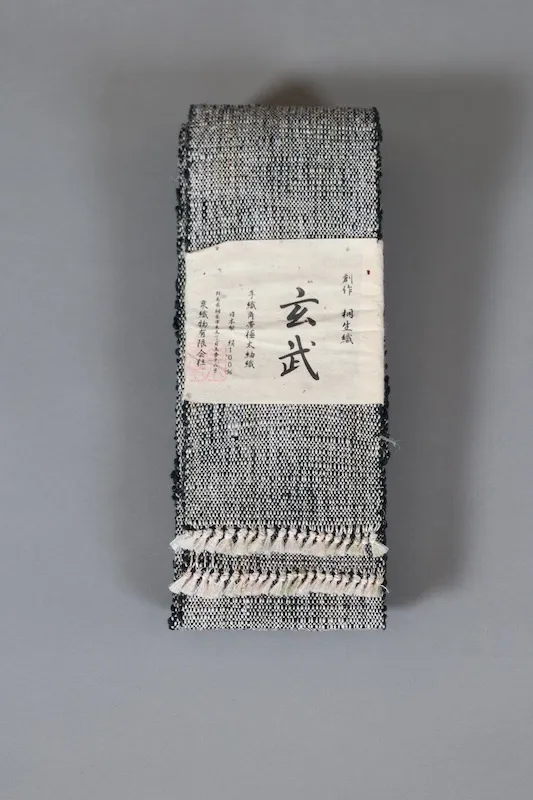 創作 桐生織
玄武
手織角帯極太紬織
日本製 絹100%
泉織物有限会社